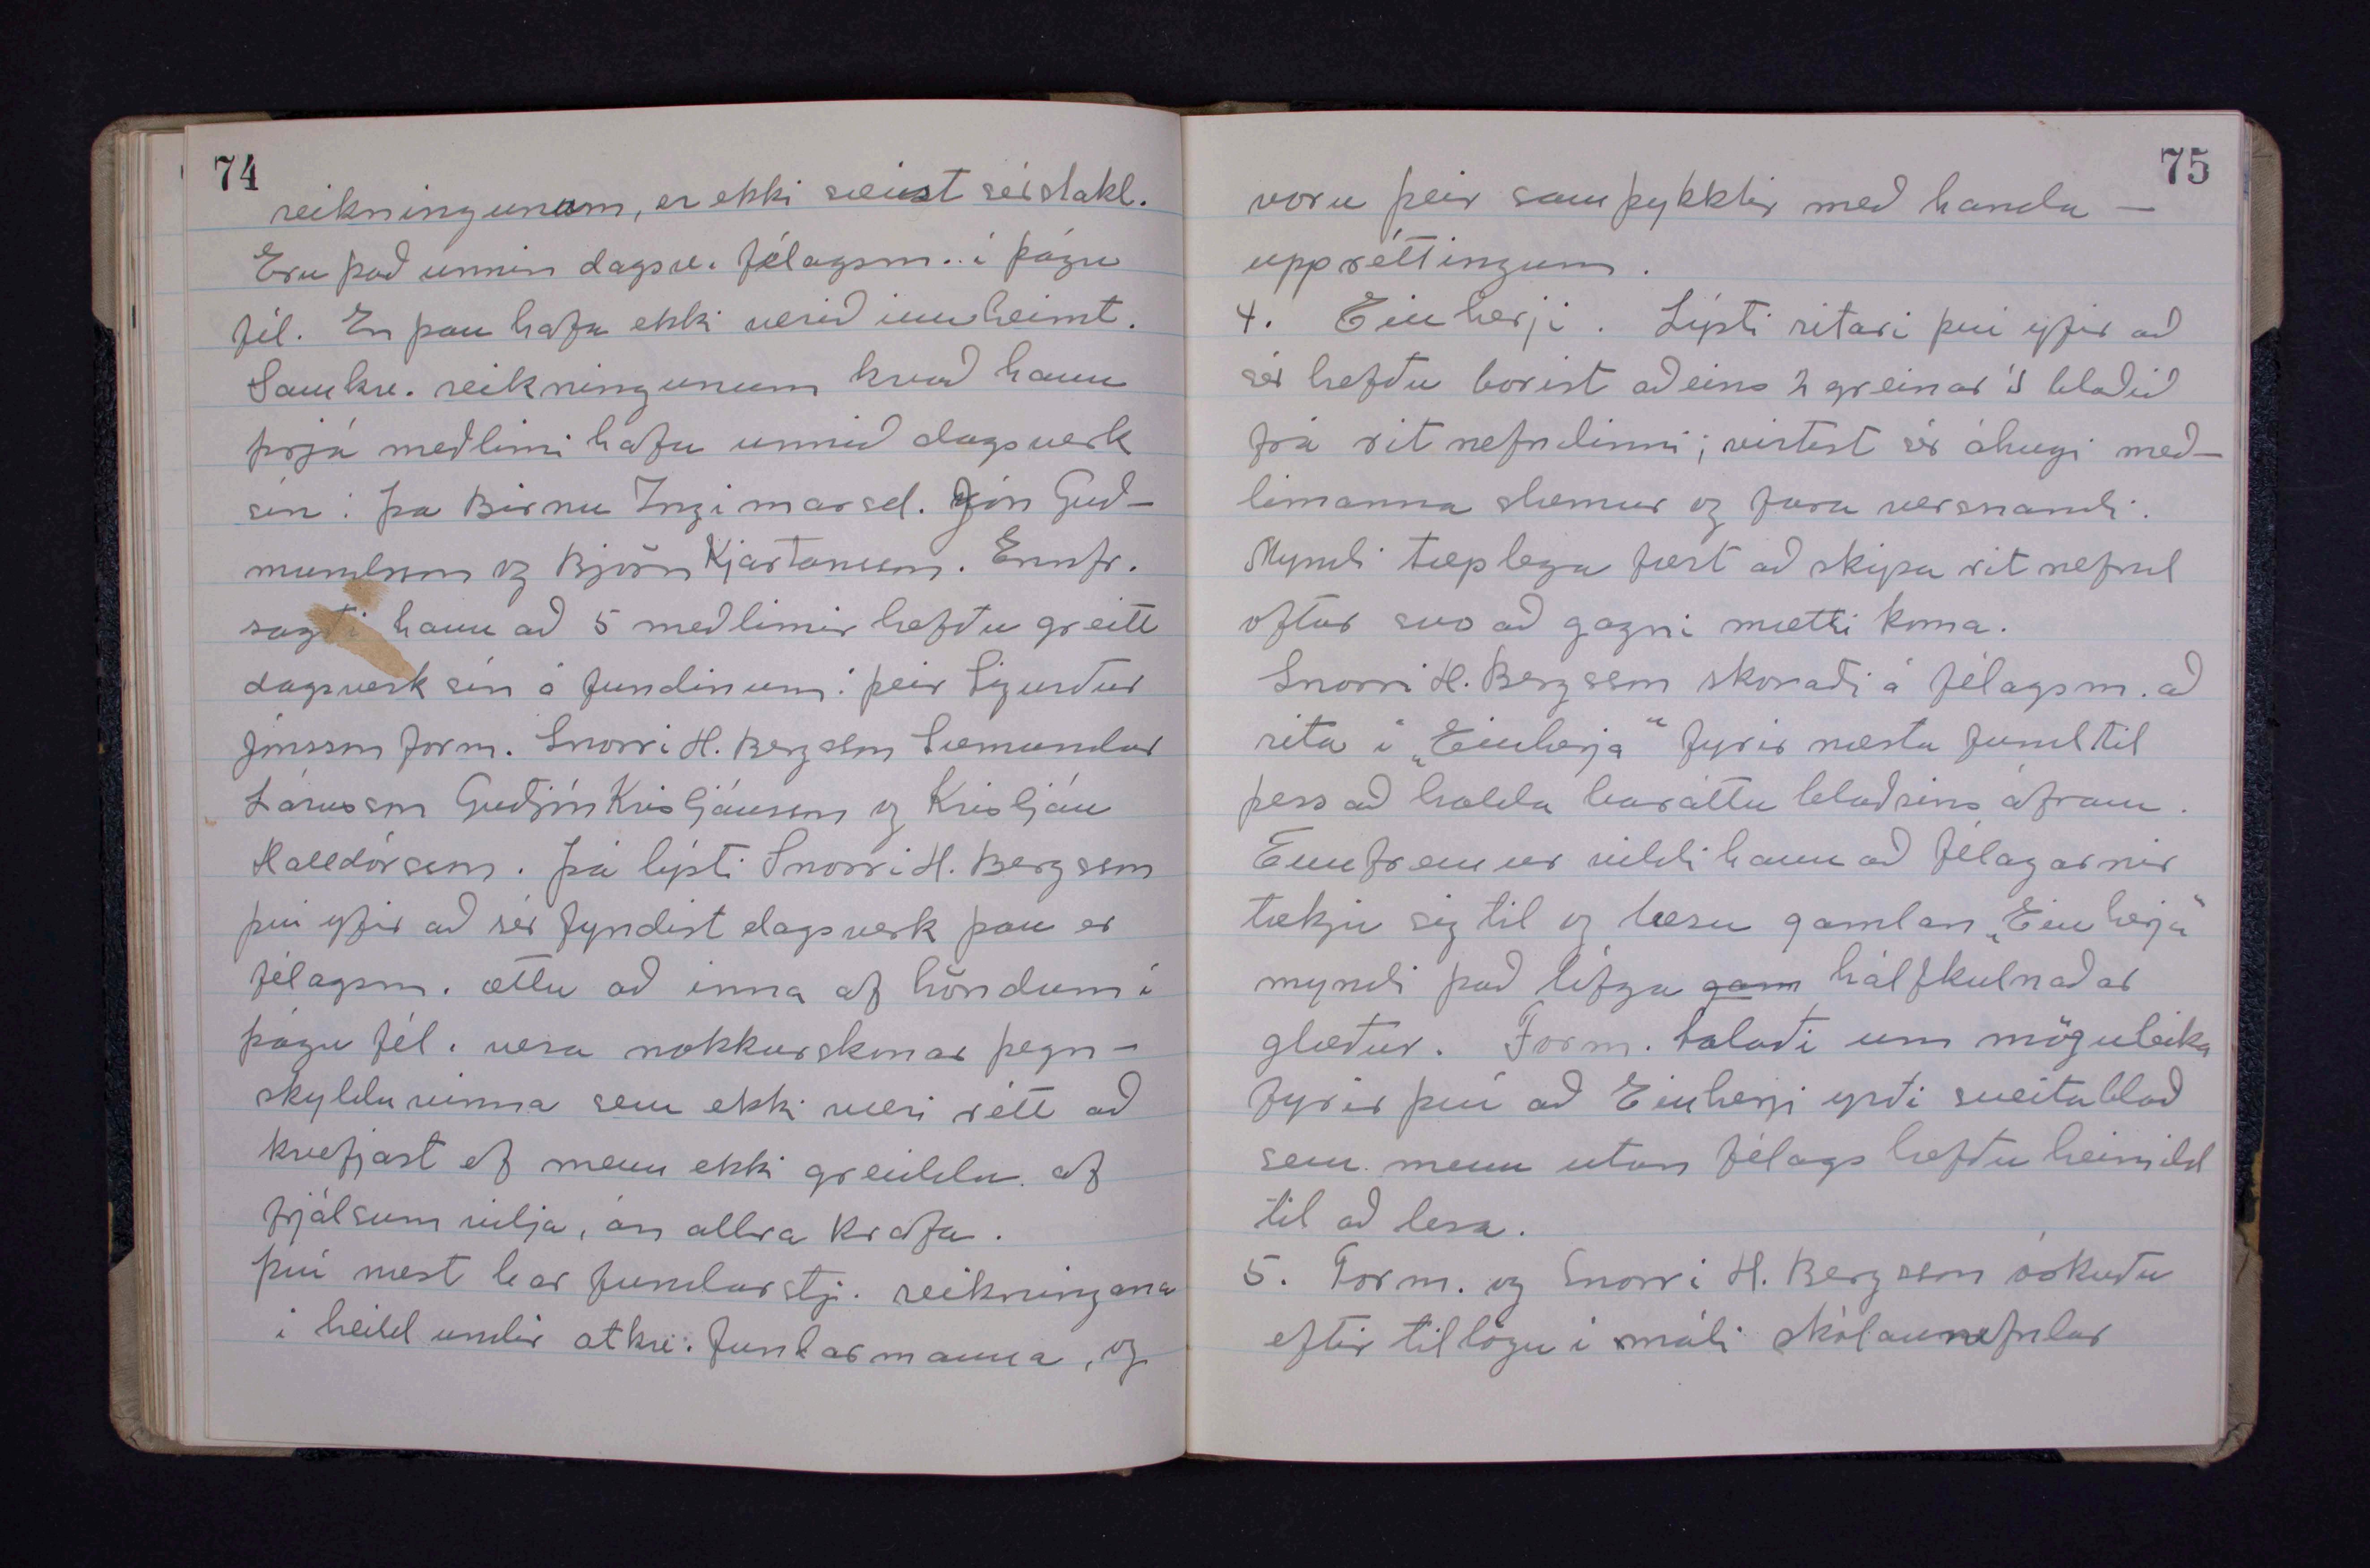 74
reikningunum, er ekki sæist sérstakl.
Eru það unnin dagsv. félagsm. í þágu
fél. En þau hafa ekki verið innheimt.
Samkv. reikningunum kvað hann
þrjá meðlimi hafa unnið dagsverk
sín: þa Birnu Ingimarsd. Jón Guð-
mundsson og Björn Kjartansson. Ennfr.
sagði hann að 5 meðlimir hefðu greitt
dagsverk sín á fundinum: þeir Sigurður
Jónsson form. Snorri H. Bergsson Sæmundur
Lárusson Guðjón Kristjánsson og Kristján
Halldórsson. Þá lýsti Snorri H. Bergsson
því yfir að sér fyndist dagsverk þau er
félagsm. ættu að inna af höndum í
þágu fél. vera nokkurskonar þegn-
skylduvinna sem ekki væri rétt að
krefjast ef menn ekki greiddu af
frjálsum vilja, án allra krafa.
Því næst bar fundarstj. reikningana
í heild undir atkv. fundarmanna, og
75
voru þeir samþykktir með handa-
uppréttingum.
4. Einherji. Lýsti ritari því yfir að
sér hefðu borist aðeins 2 greinar í blaðið
frá ritnefndinni; virtist sér áhugi með-
limanna slæmur og fara versnandi.
Myndi tæplega fært að skipa ritnefnd
aftur svo að gagni mætti koma.
Snorri H. Bergsson skoraði á félagsm. að
rita í „Einherja“ fyrir næsta fund til
þess að halda baráttu blaðsins áfram.
Ennfremur vildi hann að félagarnir
tækju sig til og læsu gamlan „Einherja“
myndi það lífga gam hálfkulnaðar
glæður. Form. talaði um möguleika
fyrir því að Einherji yrði sveitablað
sem menn utan félags hefðu heimild
til að lesa.
5. Form. og Snorri H. Bergsson óskuðu
eftir tillögu í máli skólanefndar